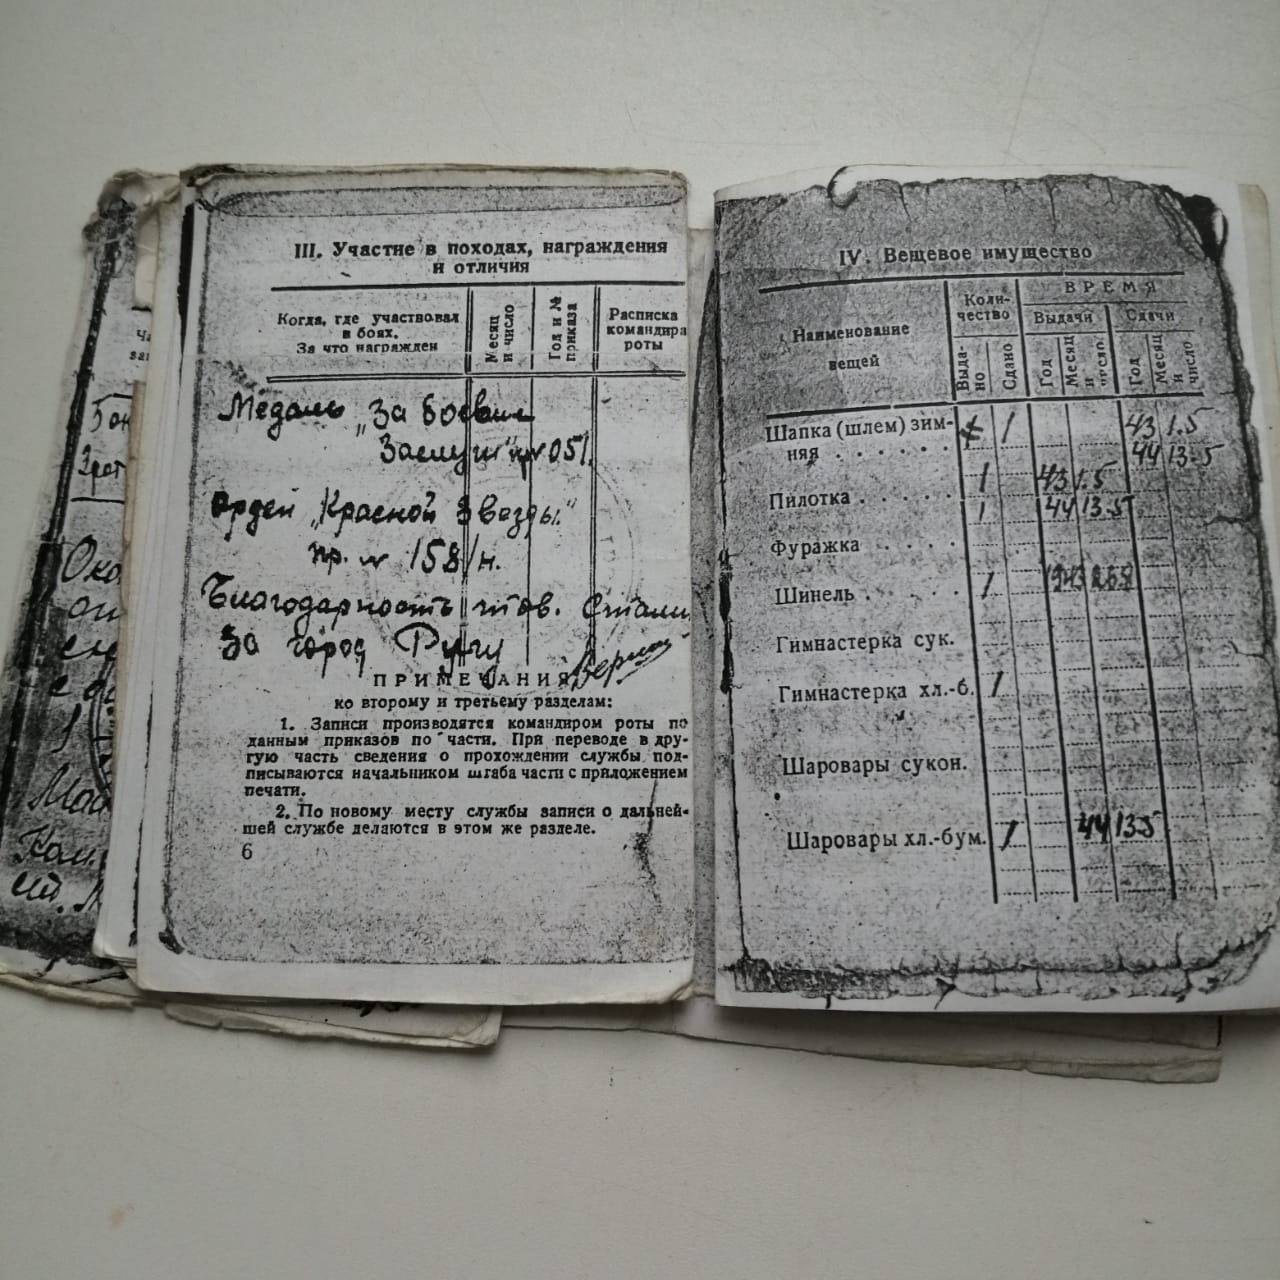 III. Участие в походах, награждения
и отличия
Когда, где участвовал
в боях.
За что награжден
Месяц
и число
Год и №
приказа
Расписка
командира
роты
Медаль „За боевые
Заслуги" № 051.
Орден „Красной Звезды"
пр. № 158/н.
Благодарность тов. Стали
За город Ригу
ПРИМЕЧАНИЯ
ко второму и третьему разделам:
1. Записи производятся командиром роты по
данным приказов по части. При переводе в дру-
гую часть сведения о прохождении службы под-
писываются начальником штаба части с приложением
печати.
2. По новому месту службы записи о дальней-
шей службе делаются в этом же разделе.
6
IV. Вещевое имущество
Наименование
вещей
Коли-
чество
ВРЕМЯ
Выдачи
Сдачи
Выда-
но
Сдано
Год
Месяц
и
число
Год
Месяц
и
число
Шапка (шлем) зим- 1 43 1.5
няя . . . . . . 44 13.5
Пилотка . . . . . 1 43 1.5
1 44 13.5
Фуражка . . . .
Шинель . . . . . 1 1943
Гимнастерка сук.
Гимнастерка хл.-б. 1
Шаровары сукон.
Шаровары хл.-бум. 1 44 13.5